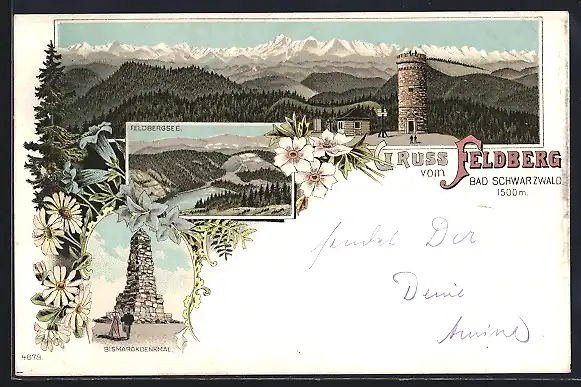 FELDBERGSEE.
GRUSS
vom FELDBERG
BAD SCHWARZWALD
1500 m.
sendet Dir
Deine
BISMARCKDENKMAL.
4878.